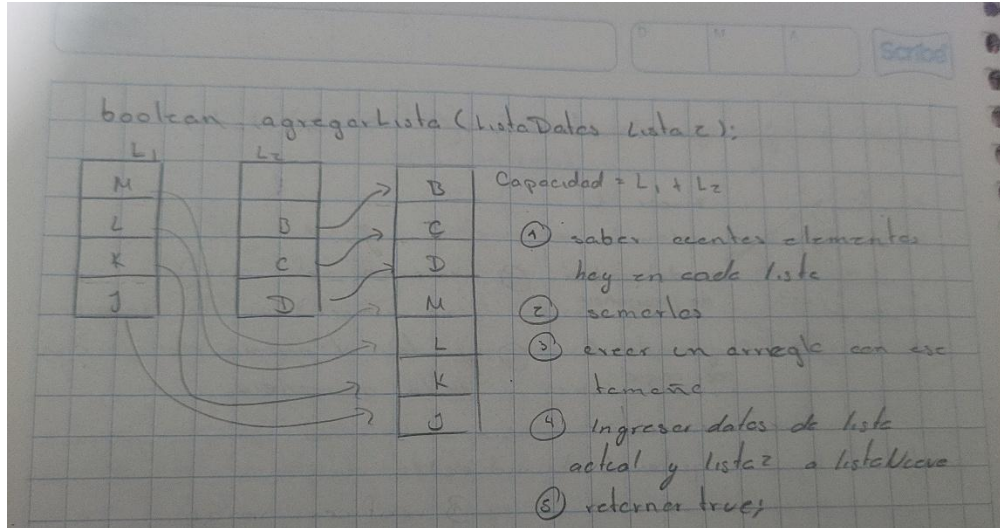 D M A
Scribe
boolean agregarLista (ListaDatos Lista2):
L1 L2
M B Capacidad = L1 + L2
L B C ① saber cuantos elementos
K C D hay en cada lista
J D M ② sumarlos
L ③ crear un arreglo con ese
K tamaño
J ④ Ingresar datos de lista
actual y lista2 a listaNueva
⑤ retornar true;